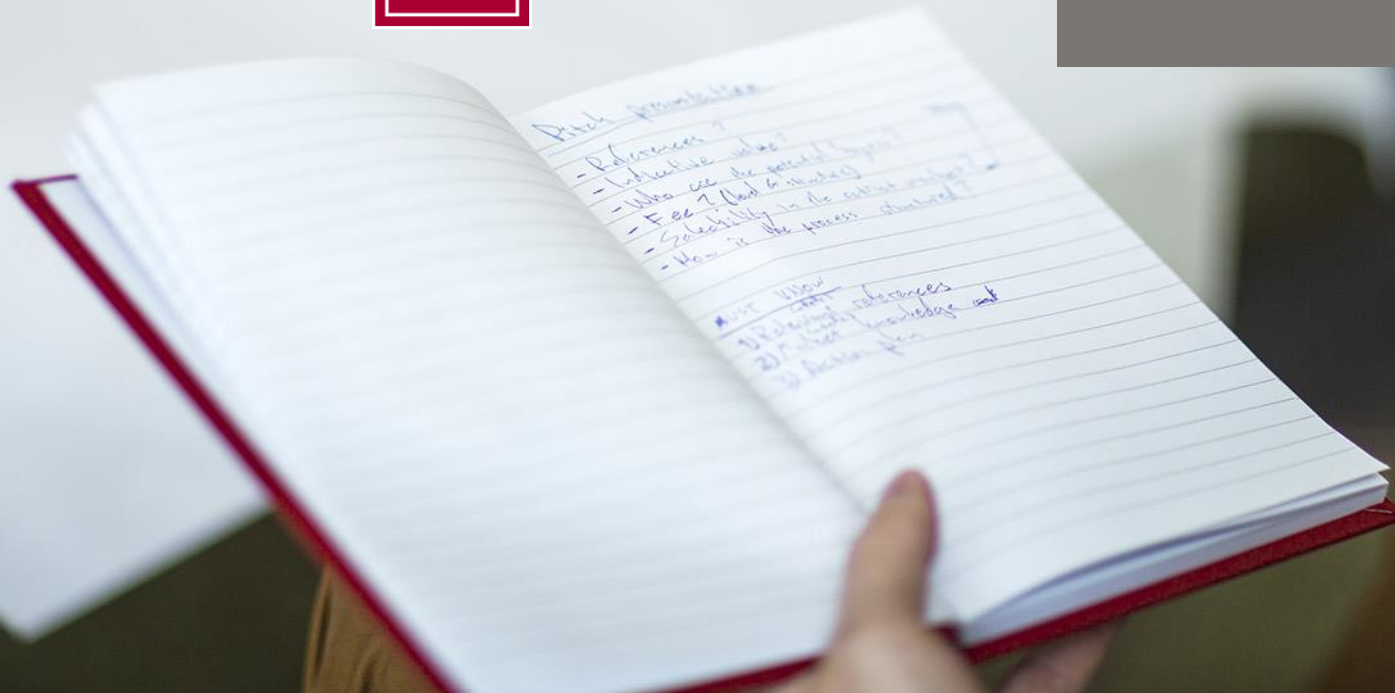 Pitch presentation
- References?
- Indicative value?
- Who are the potential buyers?
- Fee? (load & structure)
- Saleability in the current market?
- How is the process structured?
Must know
1) Relevant references
2) Market knowledge
3) Action plan